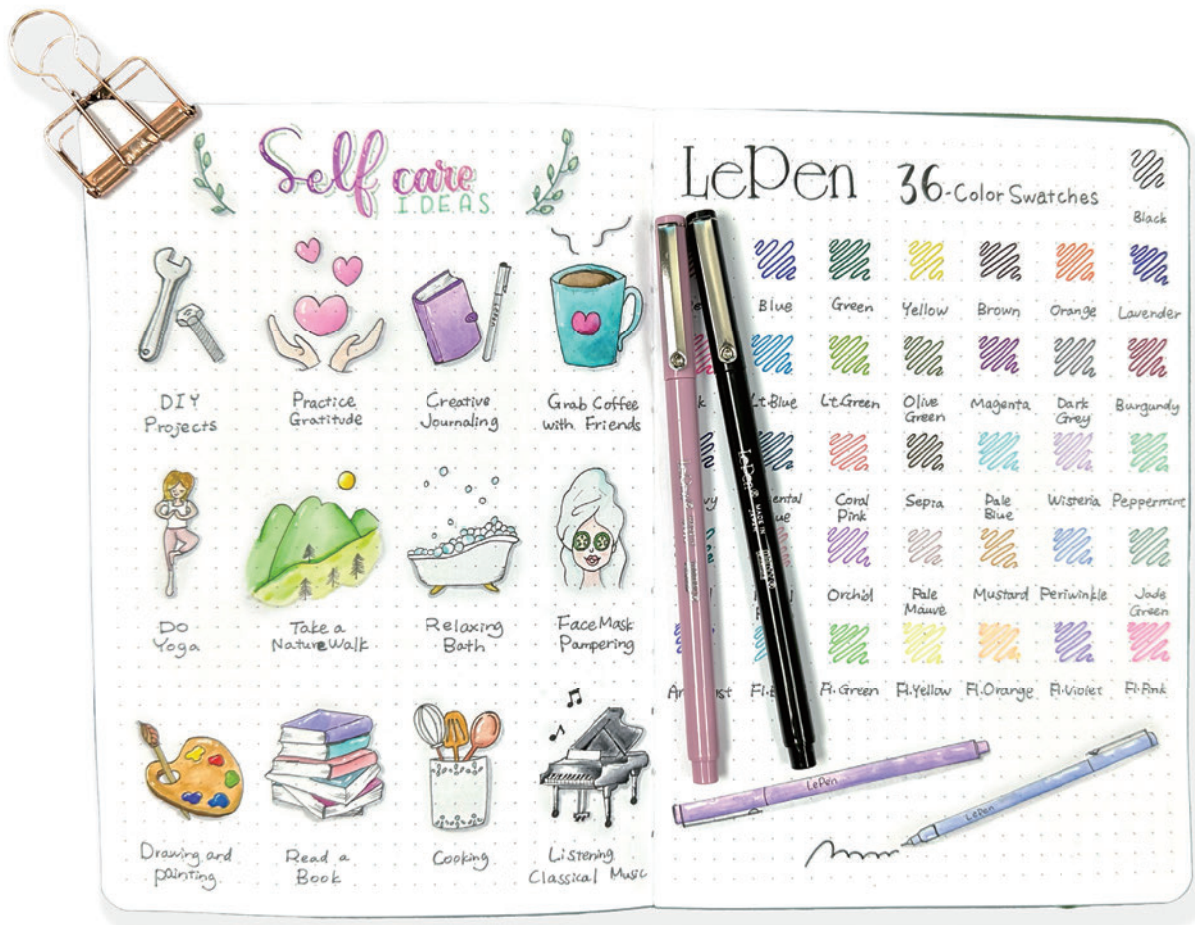 Self care
IDEAS
DIY
Projects
Practice
Gratitude
Creative
Journaling
Grab Coffee
with Friends
Do
Yoga
Take a
Nature Walk
Relaxing
Bath
Face Mask
Pampering
Drawing and
painting
Read a
Book
Cooking
Listening
Classical Music
LePen 36-Color Swatches
Black
Blue Green Yellow Brown Orange Lavender
Lt.Blue Lt.Green Olive Green Magenta Dark Grey Burgundy
Coral Pink Sepia Pale Blue Wisteria Peppermint
Orchid Pale Mauve Mustard Periwinkle Jade Green
Fl.Green Fl.Yellow Fl.Orange Fl.Violet Fl.Pink
LePen
MADE IN JAPAN
LePen
LePen